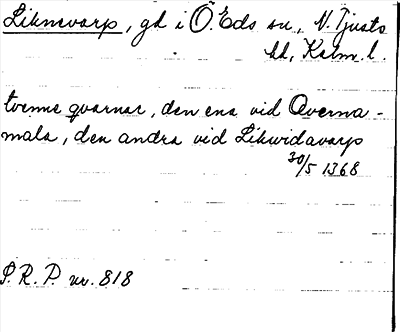 Liknevarp, gd i Ö. Eds sn., N. Tjusts
hd, Kalm. l.
tvenne qvarnar, den ena vid Qverna-
mala, den andra vid Likwidavarp
30/5 1368
S. R. P. nr. 818